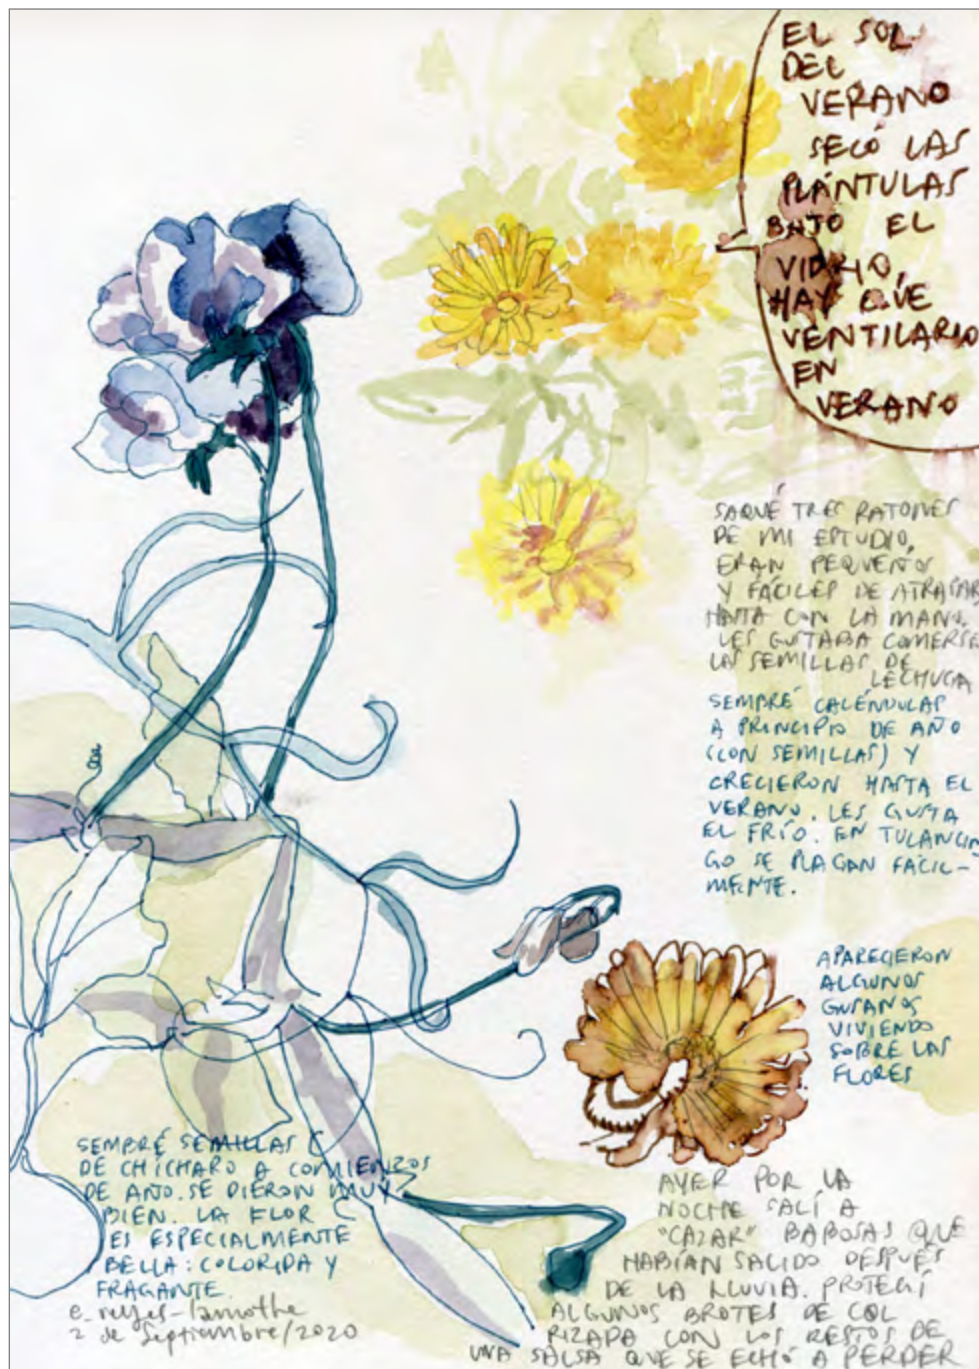 EL SOL
DEL
VERANO
SECÓ LAS
PLÁNTULAS
BAJO EL
VIDRIO,
HAY QUE
VENTILARLO
EN
VERANO
SAQUÉ TRES RATONES
DE MI ESTUDIO,
ERAN PEQUEÑOS
Y FÁCILES DE ATRAPAR
HASTA CON LA MANO.
LES GUSTABA COMERSE
LAS SEMILLAS DE
LECHUGA
SEMBRÉ CALÉNDULAS
A PRINCIPIO DE AÑO
(CON SEMILLAS) Y
CRECIERON HASTA EL
VERANO. LES GUSTA
EL FRÍO. EN TULANCIN
GO SE PLAGAN FÁCIL-
MENTE.
APARECIERON
ALGUNOS
GUSANOS
VIVIENDO
SOBRE LAS
FLORES
SEMBRÉ SEMILLAS
DE CHÍCHARO A COMIENZOS
DE AÑO. SE DIERON MUY
BIEN. LA FLOR
ES ESPECIALMENTE
BELLA: COLORIDA Y
FRAGANTE.
e. reyes-lamothe
2 de Septiembre/2020
AYER POR LA
NOCHE SALÍ A
"CAZAR" BABOSAS QUE
HABÍAN SALIDO DESPUÉS
DE LA LLUVIA. PROTEGÍ
ALGUNOS BROTES DE COL
RIZADA CON LOS RESTOS DE
UNA SALSA QUE SE ECHÓ A PERDER